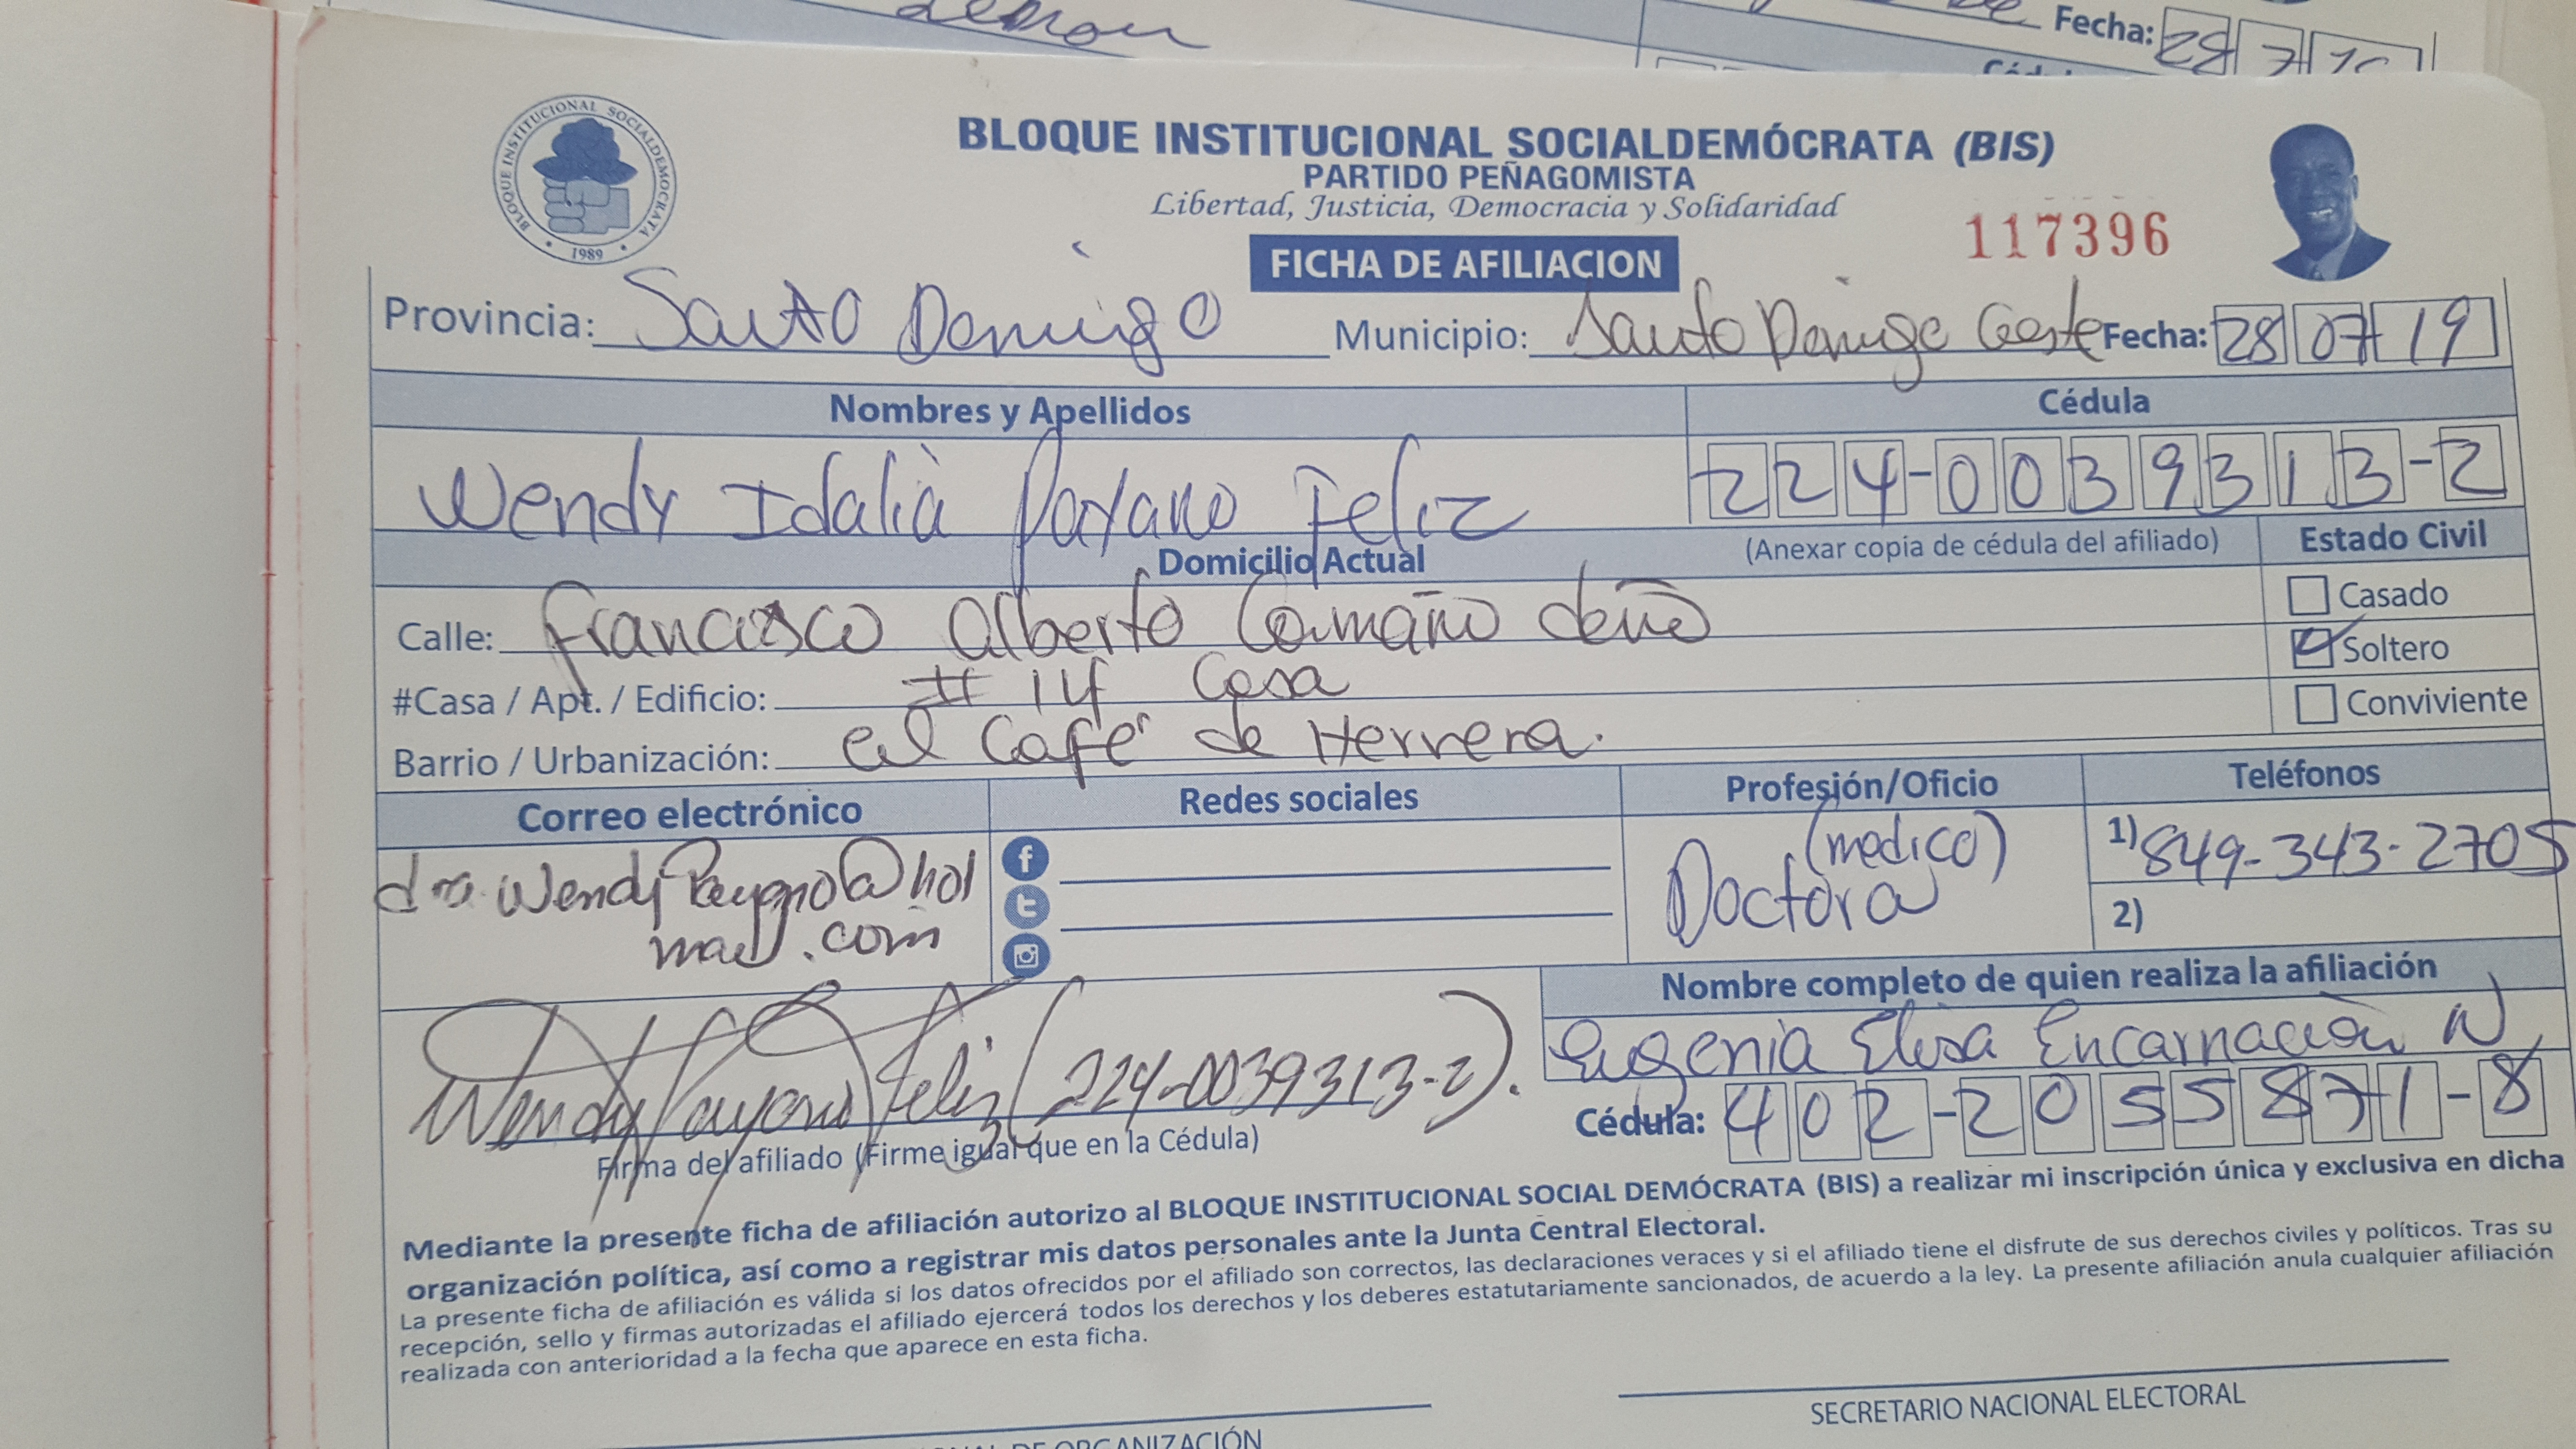 Fecha: 28 7
BLOQUE INSTITUCIONAL SOCIALDEMOCRATA
1989
BLOQUE INSTITUCIONAL SOCIALDEMÓCRATA (BIS)
PARTIDO PEÑAGOMISTA
Libertad, Justicia, Democracia y Solidaridad
117396
FICHA DE AFILIACION
Provincia: Santo Domingo Municipio: Santo Domingo Oeste Fecha: 28 07 19
Nombres y Apellidos Cédula
Wendy Idalia Payano Feliz 224-0039313-2
Domicilio Actual (Anexar copia de cédula del afiliado) Estado Civil
Calle: Francisco Alberto Camaño deño Casado
#Casa / Apt. / Edificio: # 14 Casa Soltero
Barrio / Urbanización: el Café de Herrera. Conviviente
Correo electrónico Redes sociales Profesión/Oficio Teléfonos
dra.WendyPayano@hot
mail.com
(medico)
Doctora
1) 849-343-2705
2)
Nombre completo de quien realiza la afiliación
Eugenia Elisa Encarnación N
Cédula: 402-2055871-8
Wendy Payano Feliz (224-0039313-2).
Firma del afiliado (Firme igual que en la Cédula)
Mediante la presente ficha de afiliación autorizo al BLOQUE INSTITUCIONAL SOCIAL DEMÓCRATA (BIS) a realizar mi inscripción única y exclusiva en dicha
organización política, así como a registrar mis datos personales ante la Junta Central Electoral.
La presente ficha de afiliación es válida si los datos ofrecidos por el afiliado son correctos, las declaraciones veraces y si el afiliado tiene el disfrute de sus derechos civiles y políticos. Tras su
recepción, sello y firmas autorizadas el afiliado ejercerá todos los derechos y los deberes estatutariamente sancionados, de acuerdo a la ley. La presente afiliación anula cualquier afiliación
realizada con anterioridad a la fecha que aparece en esta ficha.
DE ORGANIZACIÓN
SECRETARIO NACIONAL ELECTORAL